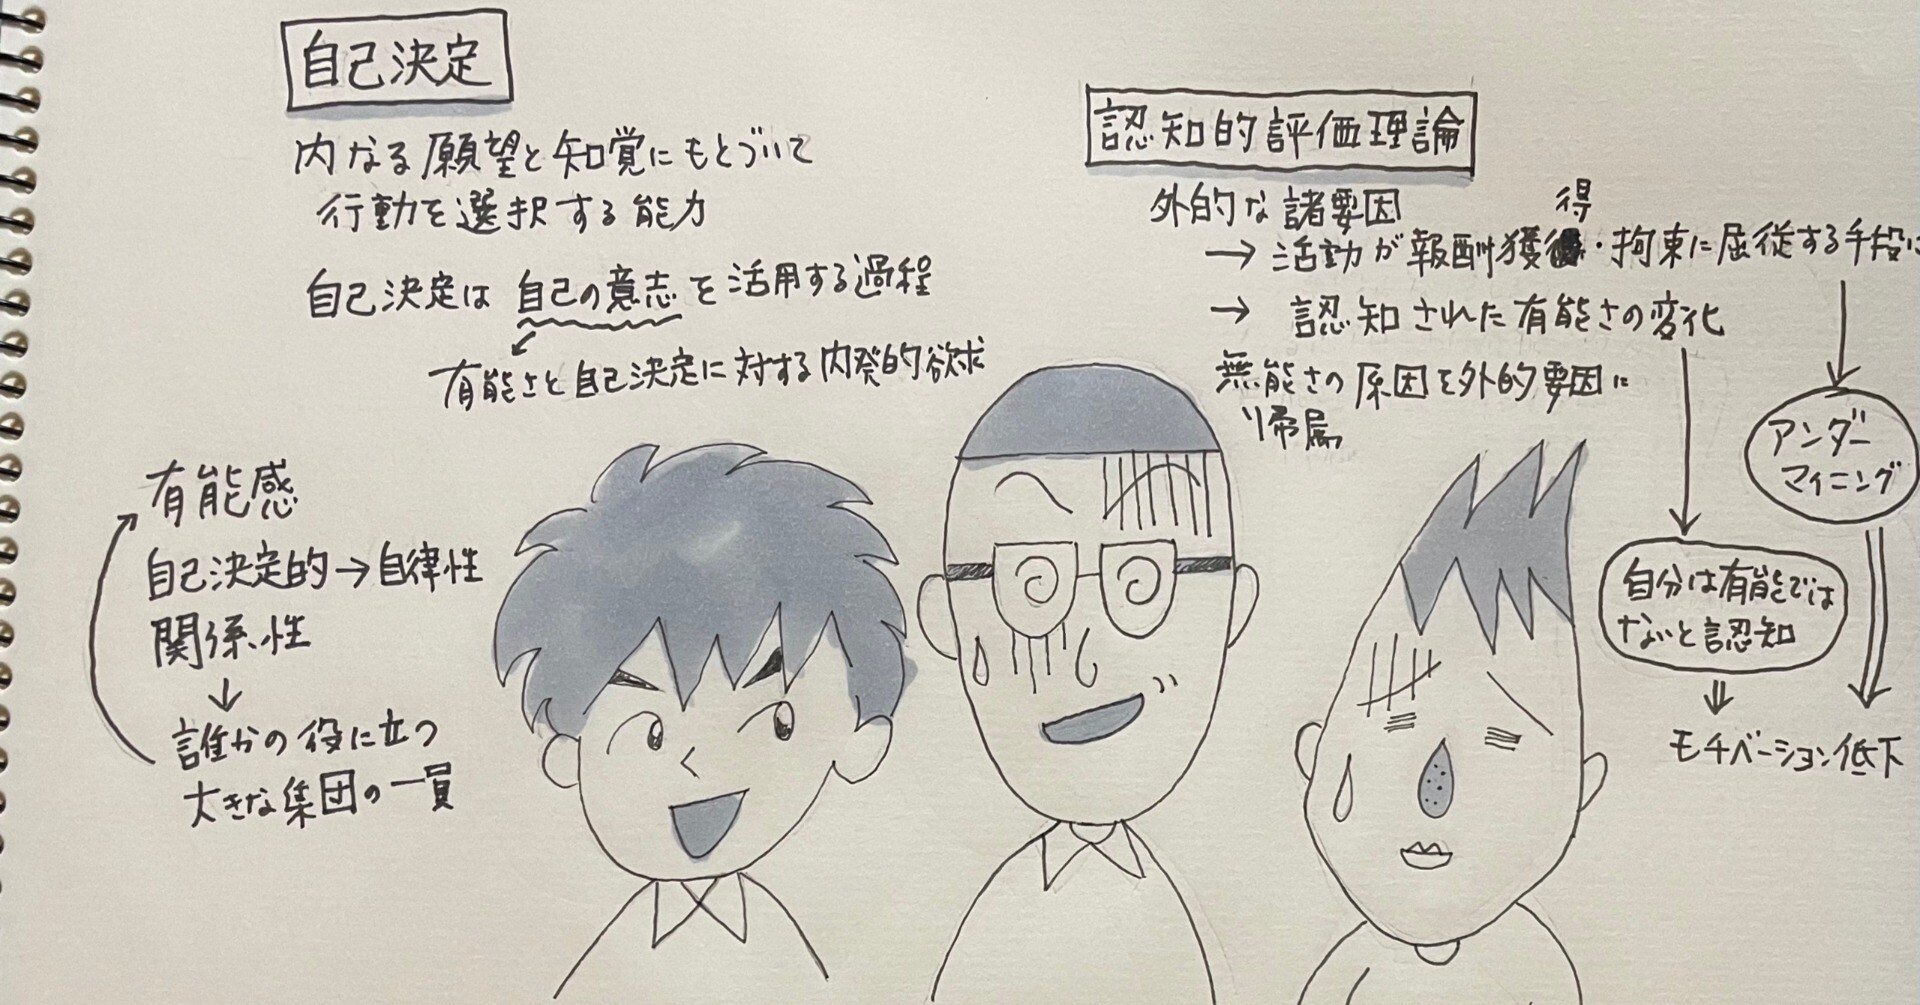 自己決定
内なる願望と知覚にもとづいて
行動を選択する能力
自己決定は自己の意志を活用する過程
有能さと自己決定に対する内発的欲求
有能感
自己決定的→自律性
関係性
↓
誰かの役に立つ
大きな集団の一員
認知的評価理論
外的な諸要因
→ 活動が報酬獲得・拘束に屈従する手段に
→ 認知された有能さの変化
無能さの原因を外的要因に
帰属
アンダー
マイニング
自分は有能では
ないと認知
モチベーション低下